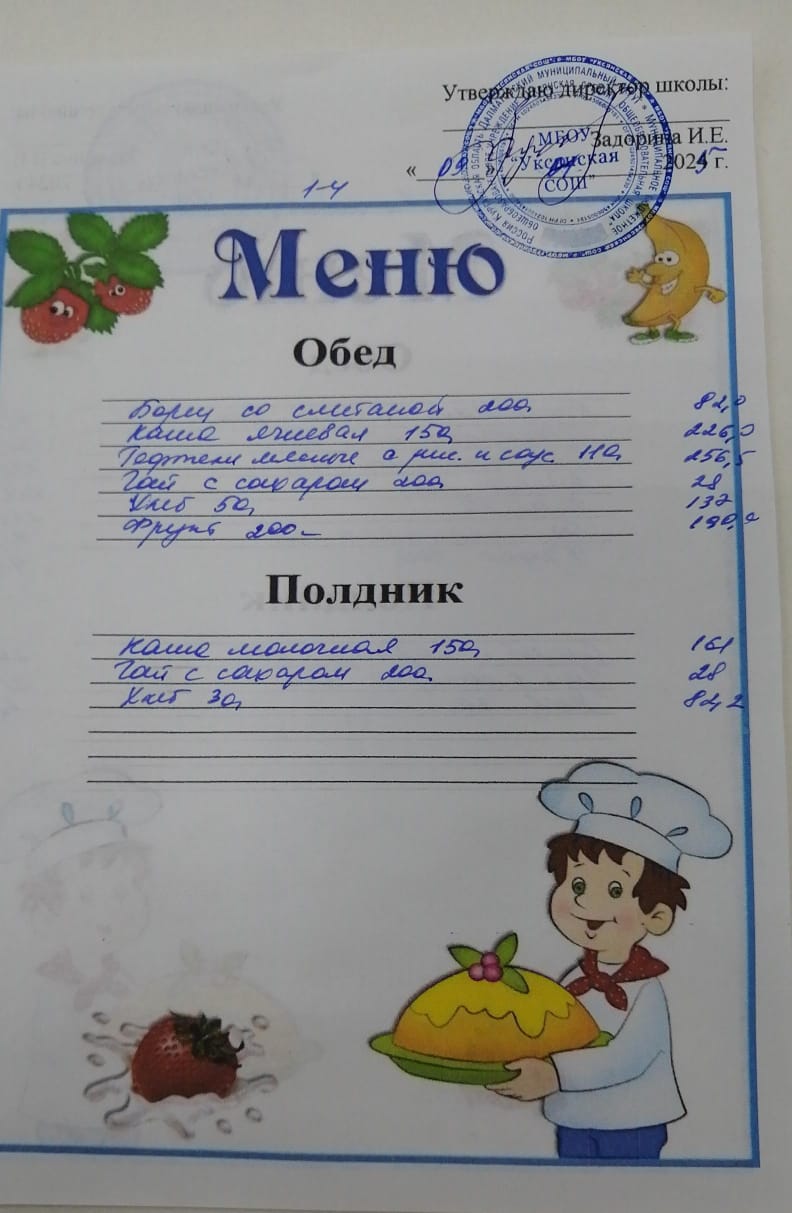 Утверждаю директор школы:
Задорина И.Е.
« 09 » 2025 г.
МБОУ
"Уксянская
СОШ"
1-4
Меню
Обед
Борщ со сметаной 200 82,0
Каша ячневая 150 226,0
Тефтели мясные с рис. и соус. 110 256,5
Чай с сахаром 200 28
Хлеб 50 137
Фрукт 200
Полдник
Каша молочная 150 161
Чай с сахаром 200 28
Хлеб 30 82,2